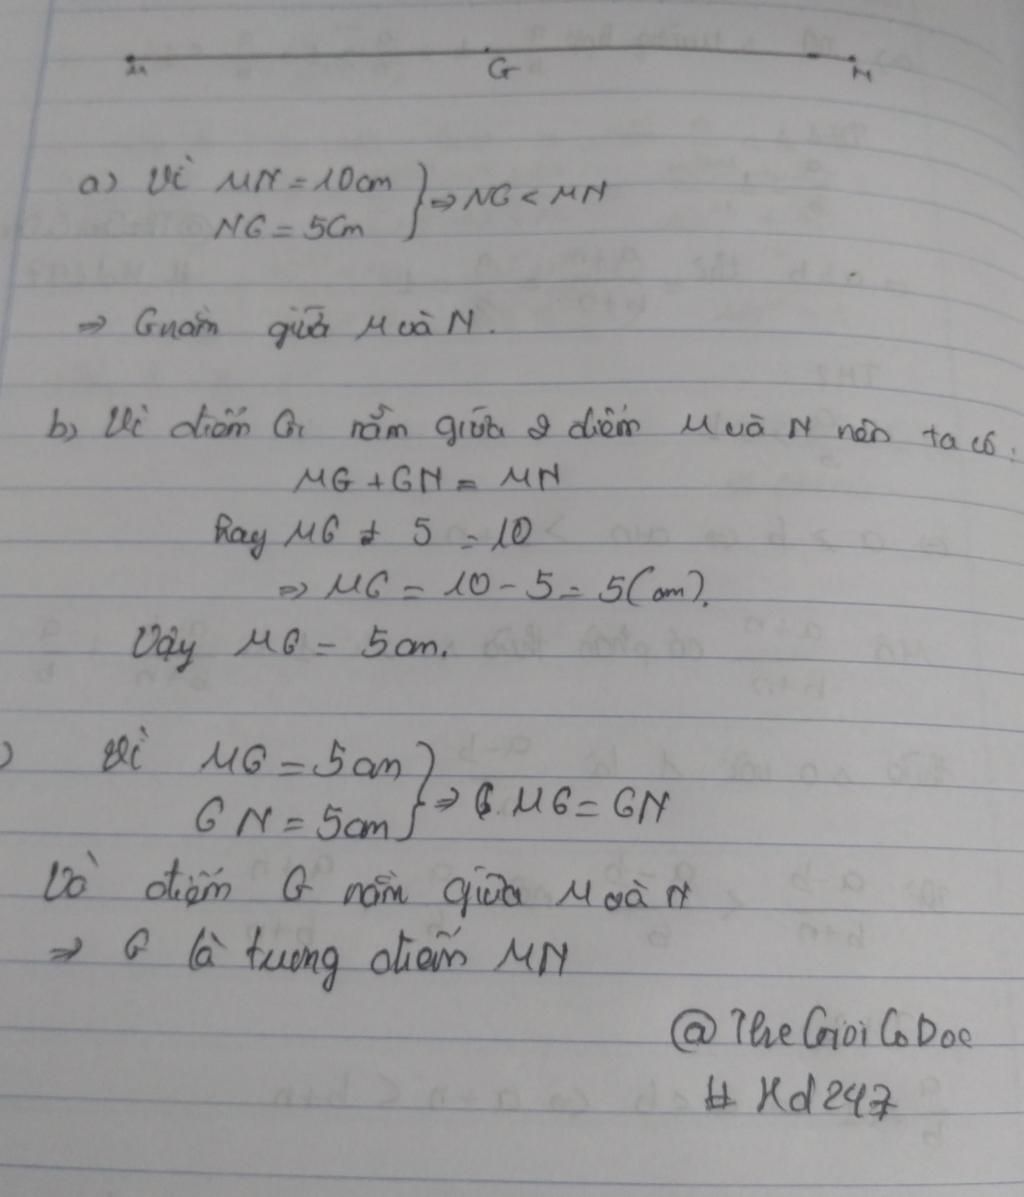 M G N
a) Vì MN = 10cm
NG = 5cm } => NG < MN
=> G nằm giữa M và N.
b) Vì điểm G nằm giữa 2 điểm M và N nên ta có:
MG + GN = MN
hay MG + 5 = 10
=> MG = 10 - 5 = 5 (cm).
Vậy MG = 5cm.
) Vì MG = 5cm
GN = 5cm } => MG = GN
Và điểm G nằm giữa M và N
=> G là trung điểm MN
@TheGioiCoDoc
# Hd247